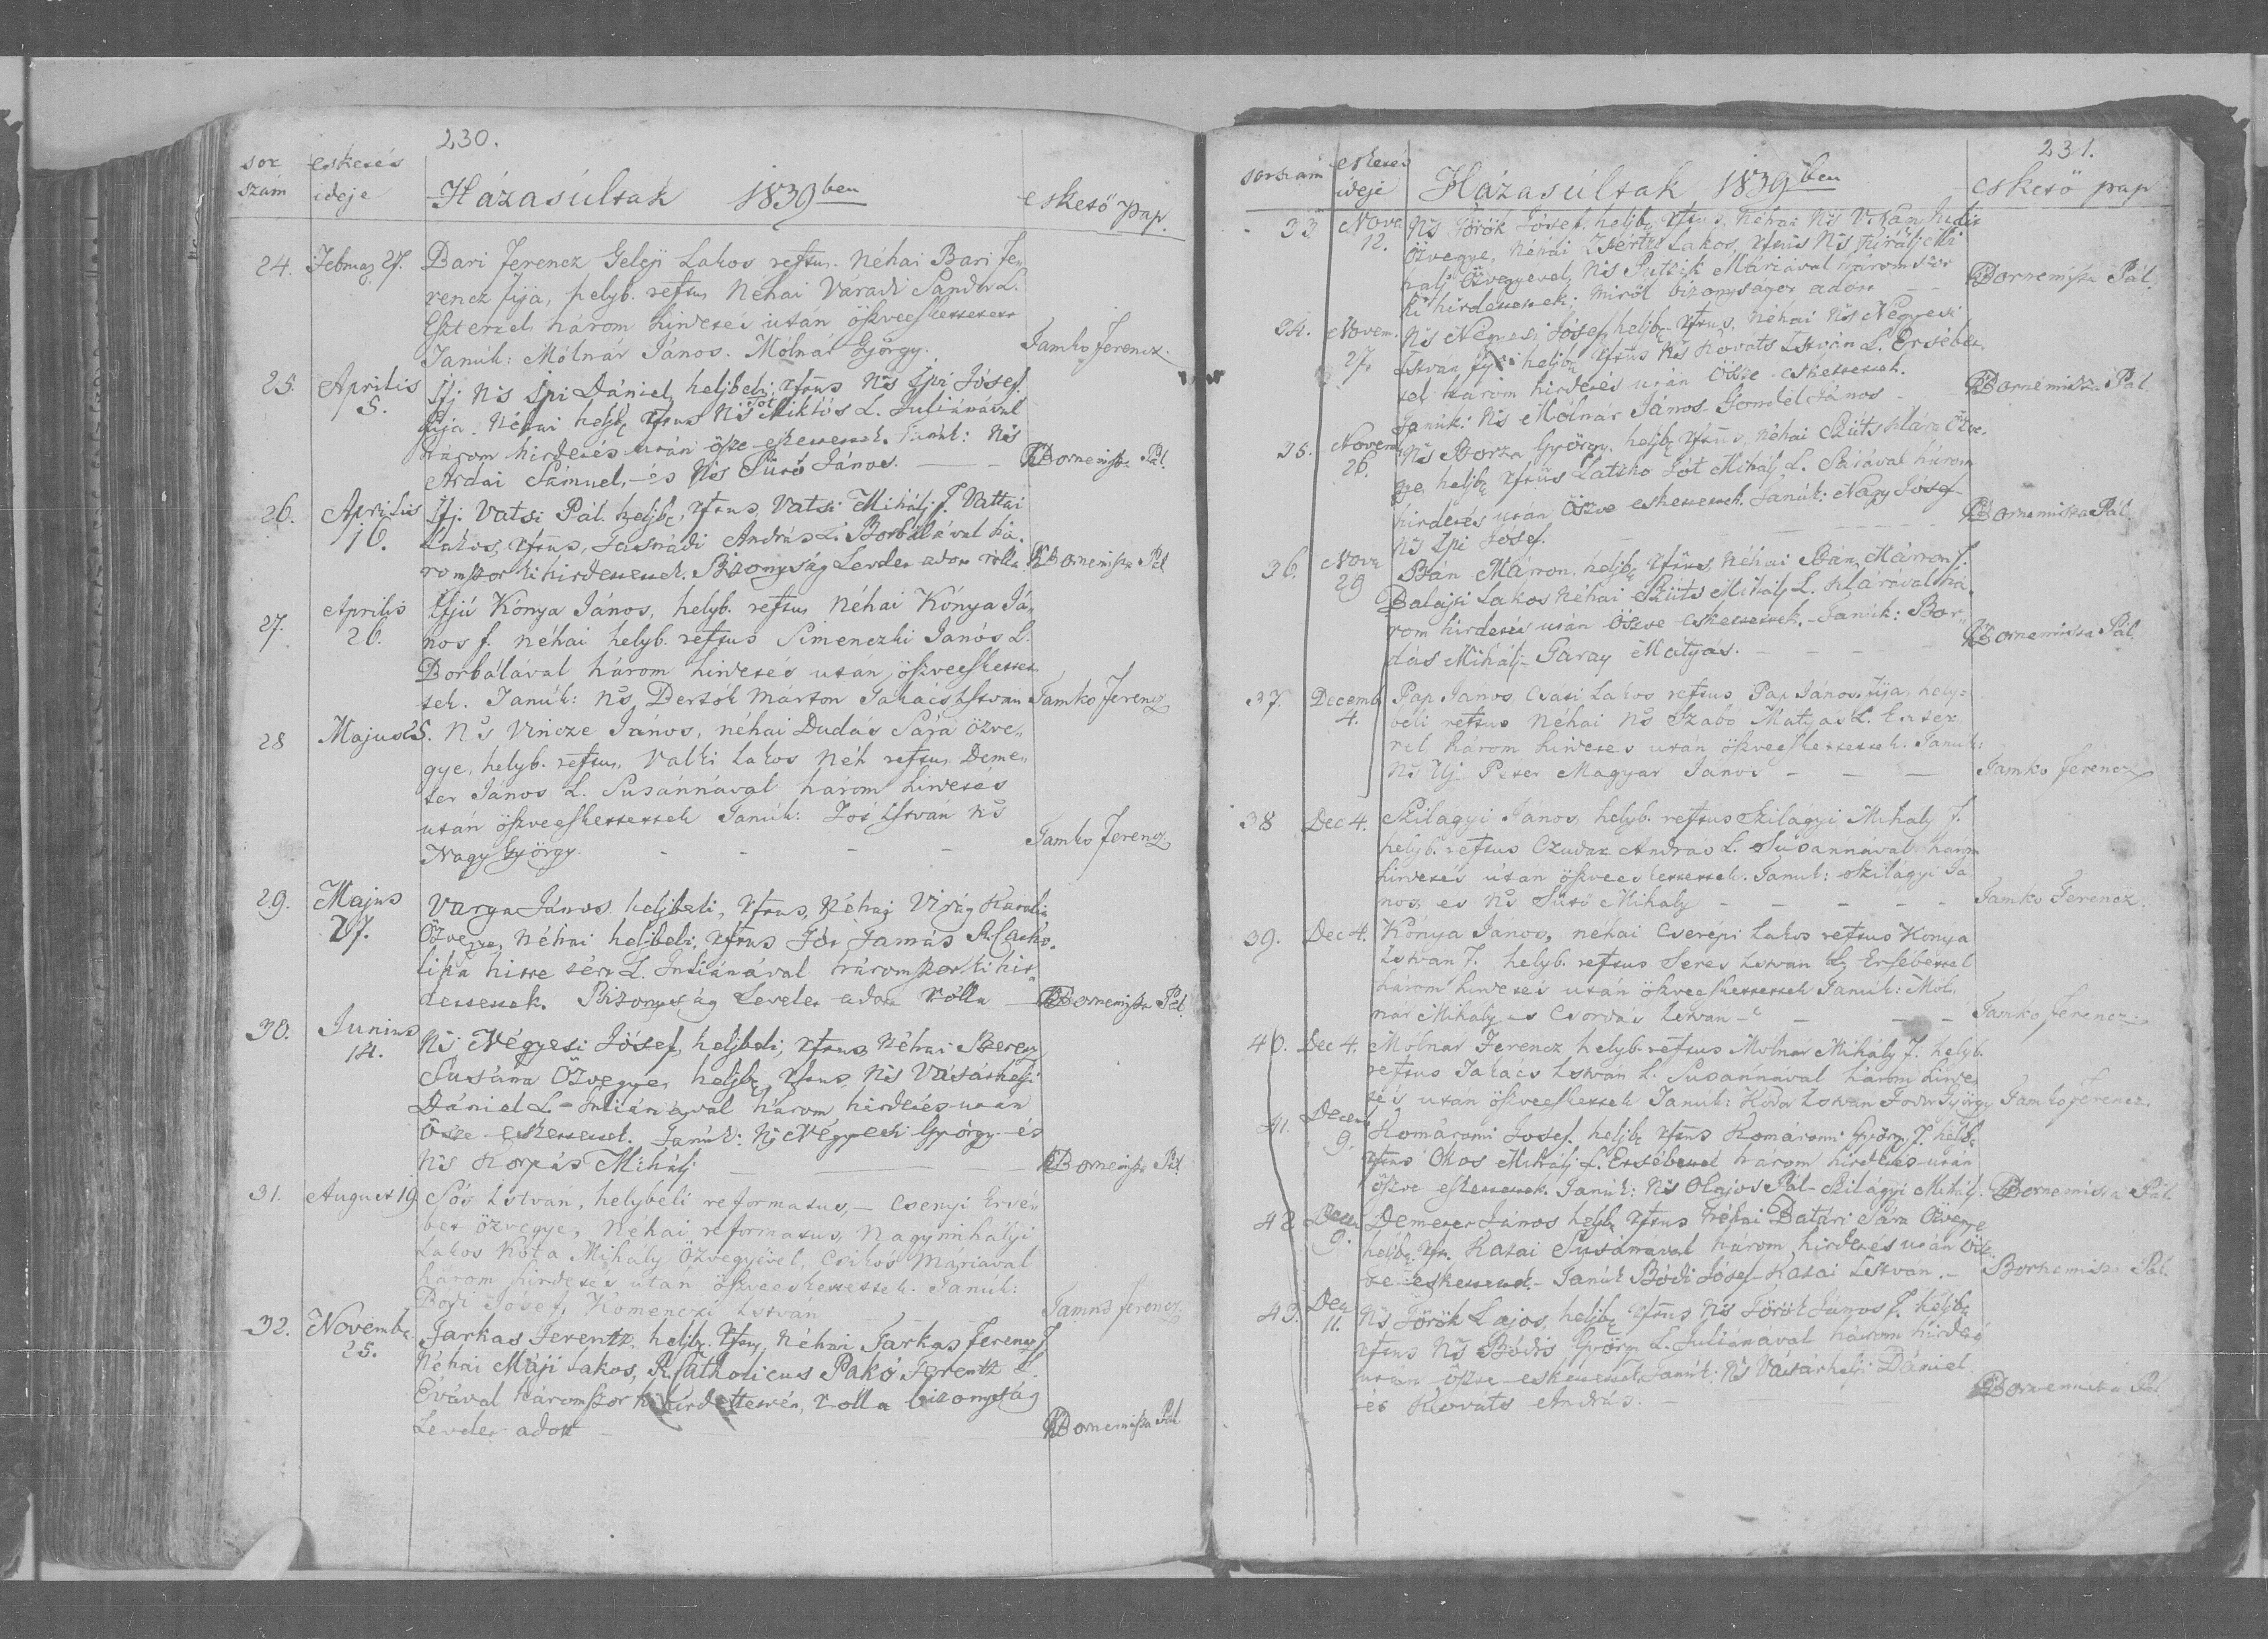 230.
sor szám
esketés ideje
Házasúltak 1839ben
eskető pap.
24. Februar 27. Bari Ferencz Geleji Lakos reftus. Néhai Bari Fe„
rencz fija, helyb. reftus Néhai Váradi Sandor L.
Eszterrel három hirdetés után öszveeskettetett
Tanúk: Mólnár János. Mólnár György. Tamko Ferencz.
25. Aprilis 5. Ifj. Ns Ipi Dániel, heljbeli, rftus Ns Ipi Jósef
fija. Néhai heljb rftus Ns Tót Miklós L. Juliánával
három hirdetés után öszve eskettettek. Tanúk: Ns
Ardai Sámuel, és Ns Sütő János. Bornemisza Pál.
26. Aprilis 16. Ifj. Vatsi Pál. heljb, rftus, Vatsi Mihálj f. Vattai
Lakos, rftus, Jasnádi András L. Borbálával há„
romszor kihirdettettek. Bizonyság Levelet adott rólla. Bornemisza Pál
27. Aprilis 26. Ifjú Kónya János, helyb. reftus Néhai Kónya Já„
nos f. néhai helyb. reftus Simenczki János L.
Borbálával három hirdetés utan öszveeskettet
tek. Tanúk: Ns Dertók Márton Takács Istvan Tamko Ferencz
28 Majus 25. Ns Vincze János, néhai Dudás Sára özve„
gye, helyb. reftus, Valki Lakos Néh reftus Deme„
ter János L. Susánnával három hirdetés
után öszveeskettettek Tanúk: Tót István Ns
Nagy György. - - - Tamko Ferencz
29. Majus 27. Varga János heljbeli, rftus, Néhai Virág Katalin
Özvegye, Néhai heljbeli, rftus Tót Tamás R. Catho„
lika hitre tért L. Juliánával háromszor kihir„
dettettek. Bizonyság Levelet adott rólla Bornemisza Pál.
30. Junius 14. Ns Négyesi Jósef, heljbeli, rftus, Néhai Szerey
Susána Özvegye, heljb, rftus Ns Vásárhelji
Dániel L. Juliánával három hirdetés utan
össze eskettettek. Tanúk: Ns Négyesi György és
Ns Korpás Mihálj Bornemisza Pál
31. August 19 Sós István, helybéli reformatus, - Csenyi Ersé„
bet özvegye, Néhai reformatus, Nagymihályi
Lakos Kóta Mihály Özvegyével, Csikós Máriaval
három hirdetés után öszveeskettettek. Tanúk:
Bódi Jósef, Komenczi Istvan Tamko Ferencz.
32. Novembr. 25. Farkas Ferentz, heljb. rftus, Néhai Farkas Ferencz f.
Néhai Máji Lakos, R. Catholicus Pakó Ferentz L.
Évával háromszor kihirdettetvén, rólla bizonyság
Levelet adott Bornemisza Pál
231.
sorszám
esketés ideje
Házasúltak 1839ben
eskető pap
33 Nove 12. Ns Török Jósef. heljb, rftus. Néhai Ns Judit
Özvegye, Néhai Lakos, rftus Ns Királj Mi
halj Özvegyével, Ns Putzik Máriával háromszor
ki hirdettettek: miről bizonyságot adott Bornemisza Pál.
34. Novem. 27. Ns Nemesi Jósef, heljb. rftus, Néhai Ns Négyesi
István heljb rftus Ns Kováts István L. Ersébet„
tel három hirdetés után össze eskettettek.
Tanúk: Ns Mólnár János. Gondel János Bornemisza Pál
35. Novem. 26. Ns Borza György. heljb. rftus, néhai Szüts Klára Özve„
gye, heljb rftus Latzko Tót Mihálj L. Sárával három
hirdetés után öszve eskettettek. Tanúk: Nagy Jósef
Ns Ipi Jósef. Bornemisza Pál.
36. Nove 29 Bán Márton. heljb rftus, Néhai Bán Márton f.
Balajti Lakos Néhai Szüts Mihálj L. Klárával há„
rom hirdetés után öszve eskettettek. Tanúk: Bor„
dás Mihálj. Garay Mátyás. Bornemisza Pál.
37. Decemb. 4. Pap János Csási Lakos reftus Pap János fija, hely=
beli reftus Néhai Ns Szabó Matyás L. Eszter
rel három hirdetés után öszveeskettettek. Tanúk:
Ns Ifj. Péter Magyar János Tamko Ferencz
38 Dec 4. Szilágyi János, helyb. reftus Szilágyi Mihaly f.
helyb. reftus Czudar Andras L. Susannával három
hirdetés után öszveeskettettek. Tanuk: Szilágyi Já
nos, es Ns Sütő Mihály Tamko Ferencz.
39. Dec 4. Kónya János, néhai Cserépi Lakos reftus Kónya
Istvan f. helyb. reftus Seres Istvan L. Ersébettel
három hirdetés után öszveeskettettek Tanúk: Mol„
nár Mihály és Csordás Istvan Tamko Ferencz.
40. Dec 4. Mólnar Ferencz helyb. reftus Molnár Mihály f. helyb.
reftus Takács Istvan L. Susannával három hirde„
tés utan öszveeskettek Tanúk: Kódor Istvan Fodor György Tamko Ferencz.
41. Decem 9. Komáromi Josef. heljb rftus Komáromi György f. heljb
rftus Okos Mihálj L. Ersébettel három hirdetés után
öszve eskettettek. Tanúk: Ns Olajos Pál. Szilágyi Mihálj. Bornemisza Pál.
42 Decem 9. Demeter János heljb rftus Néhai Batári Sára Özvegye
heljb. rft. Katai Susánával három hirdetés után ösz„
ve eskettettek. Tanúk Bódi Jósef Katai István. Bornemisza Pál.
43. Dec 11. Ns Török Lajos, heljb rftus Ns Török János f. heljb
rftus Ns Bódis György L. Juliánával három hirdetés
után öszve eskettettek, Tanúk: Ns Vásárhelji Dániel
és Kováts András. Bornemisza Pál